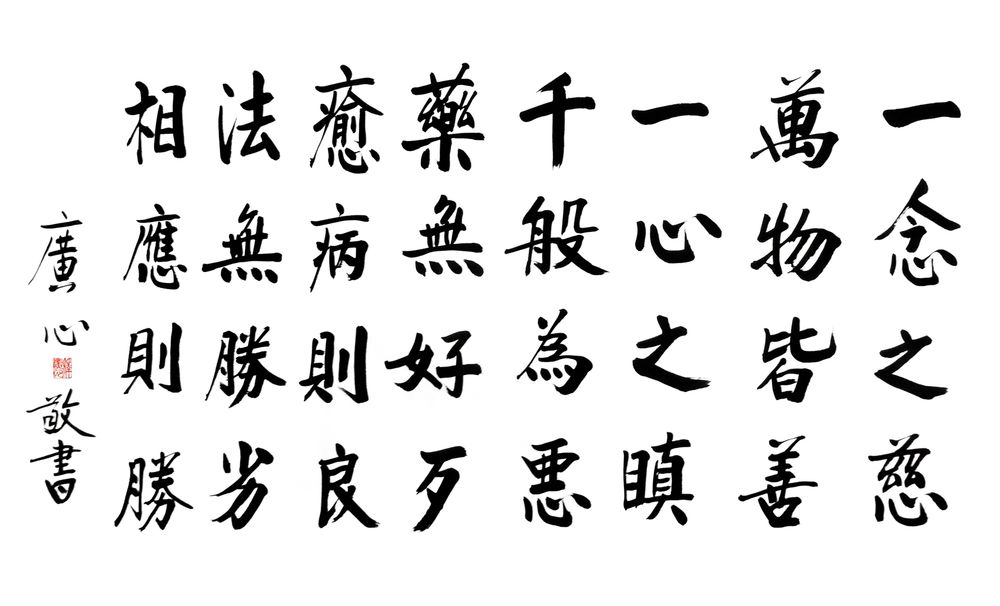 一念之慈
萬物皆善
一心之瞋
千般為悪
藥無好歹
癒病則良
法無勝劣
相應則勝
廣心敬書